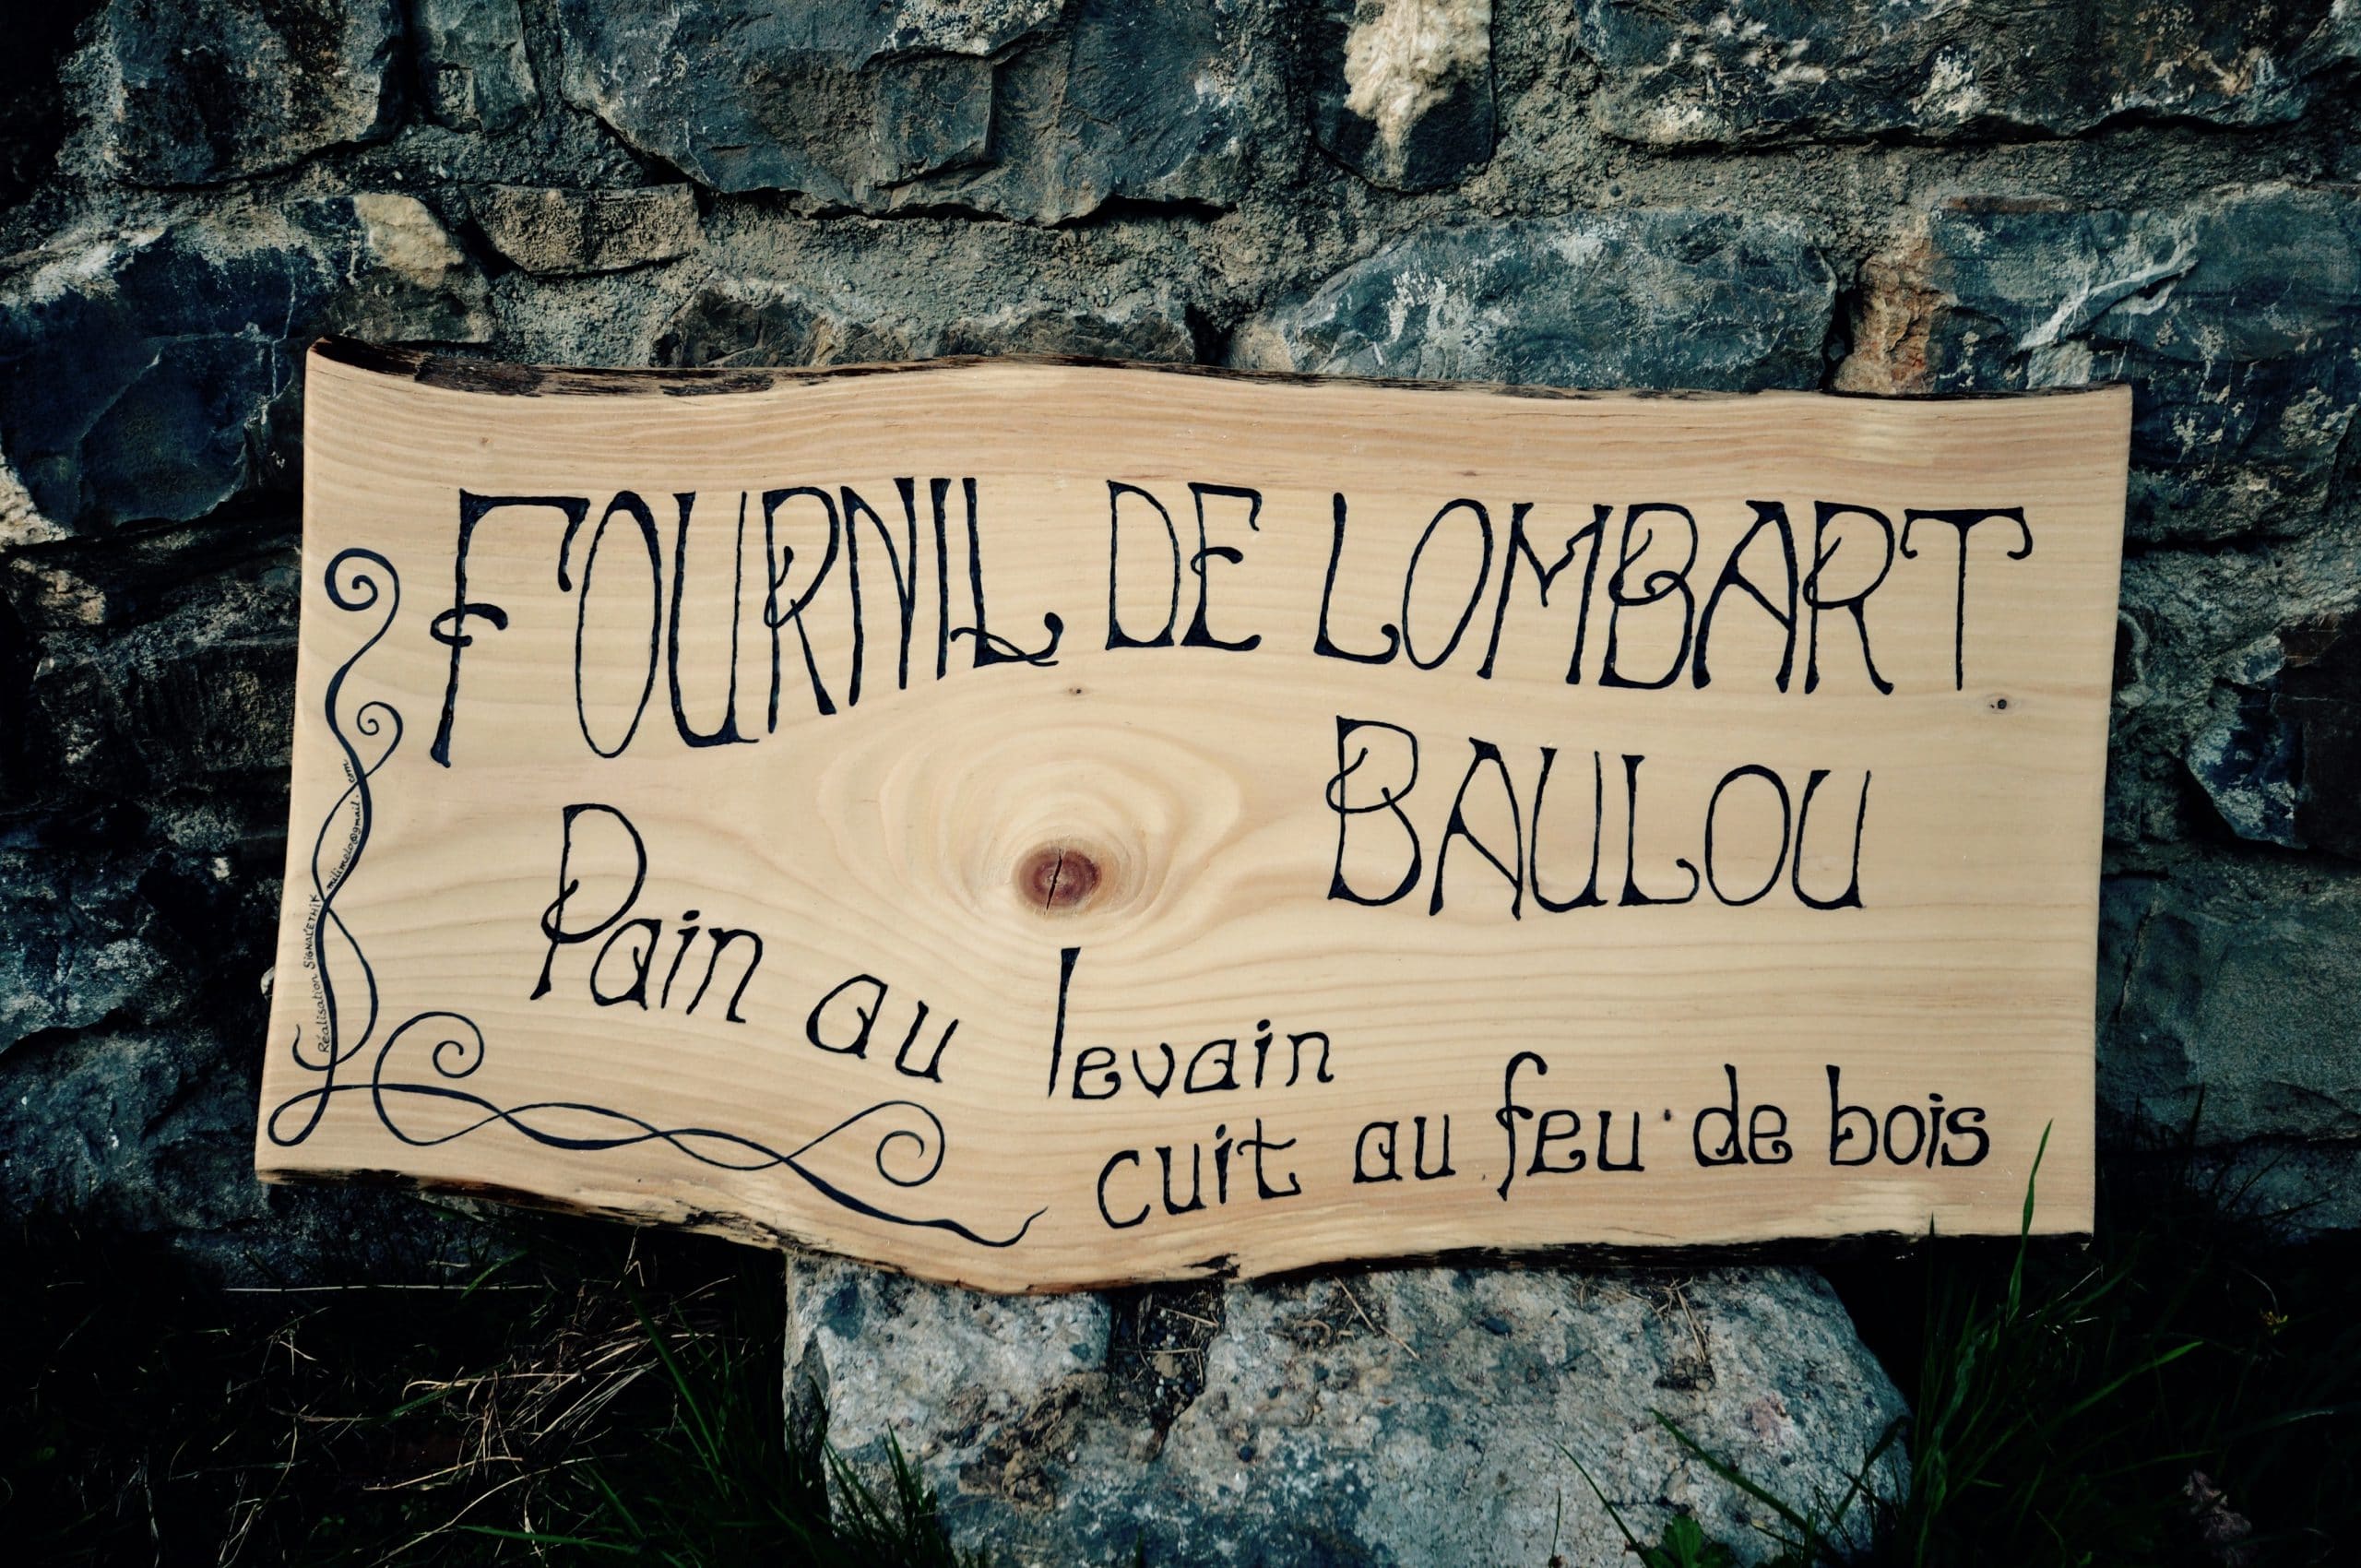 FOURNIL DE LOMBART
BAULOU
Pain au levain
cuit au feu de bois
Réalisation SIGNAL'ETHIK melimelo@gmail.com